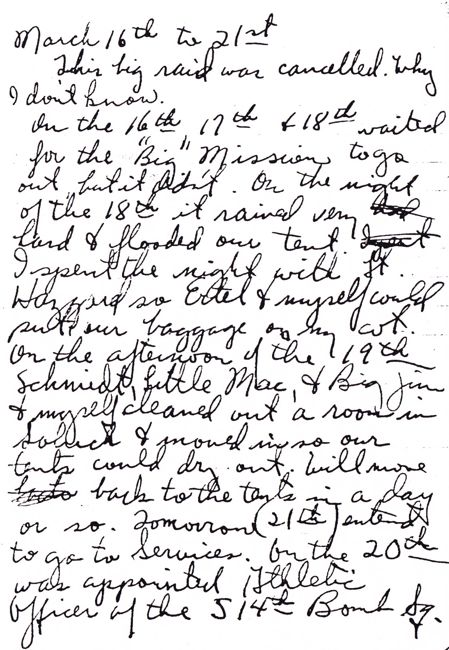 March 16th to 21st
This big raid was cancelled. Why
I don't know.
On the 16th 17th & 18th waited
for the "Big" Mission to go
out, but it didn't. On the night
of the 18th it rained very
hard & flooded our tent.
I spent the night with Lt.
Hazzard so Ertel & myself could
put our baggage on my cot.
On the afternoon of the 19th
Schmidt, Little Mac, & Big Jim
& myself cleaned out a room in
& moved in so our
tents could dry out. Will move
back to the tents in a day
or so. Tomorrow (21st) intend
to go to Services. On the 20th
was appointed Athletic
Officer of the 514th Bomb Sq.